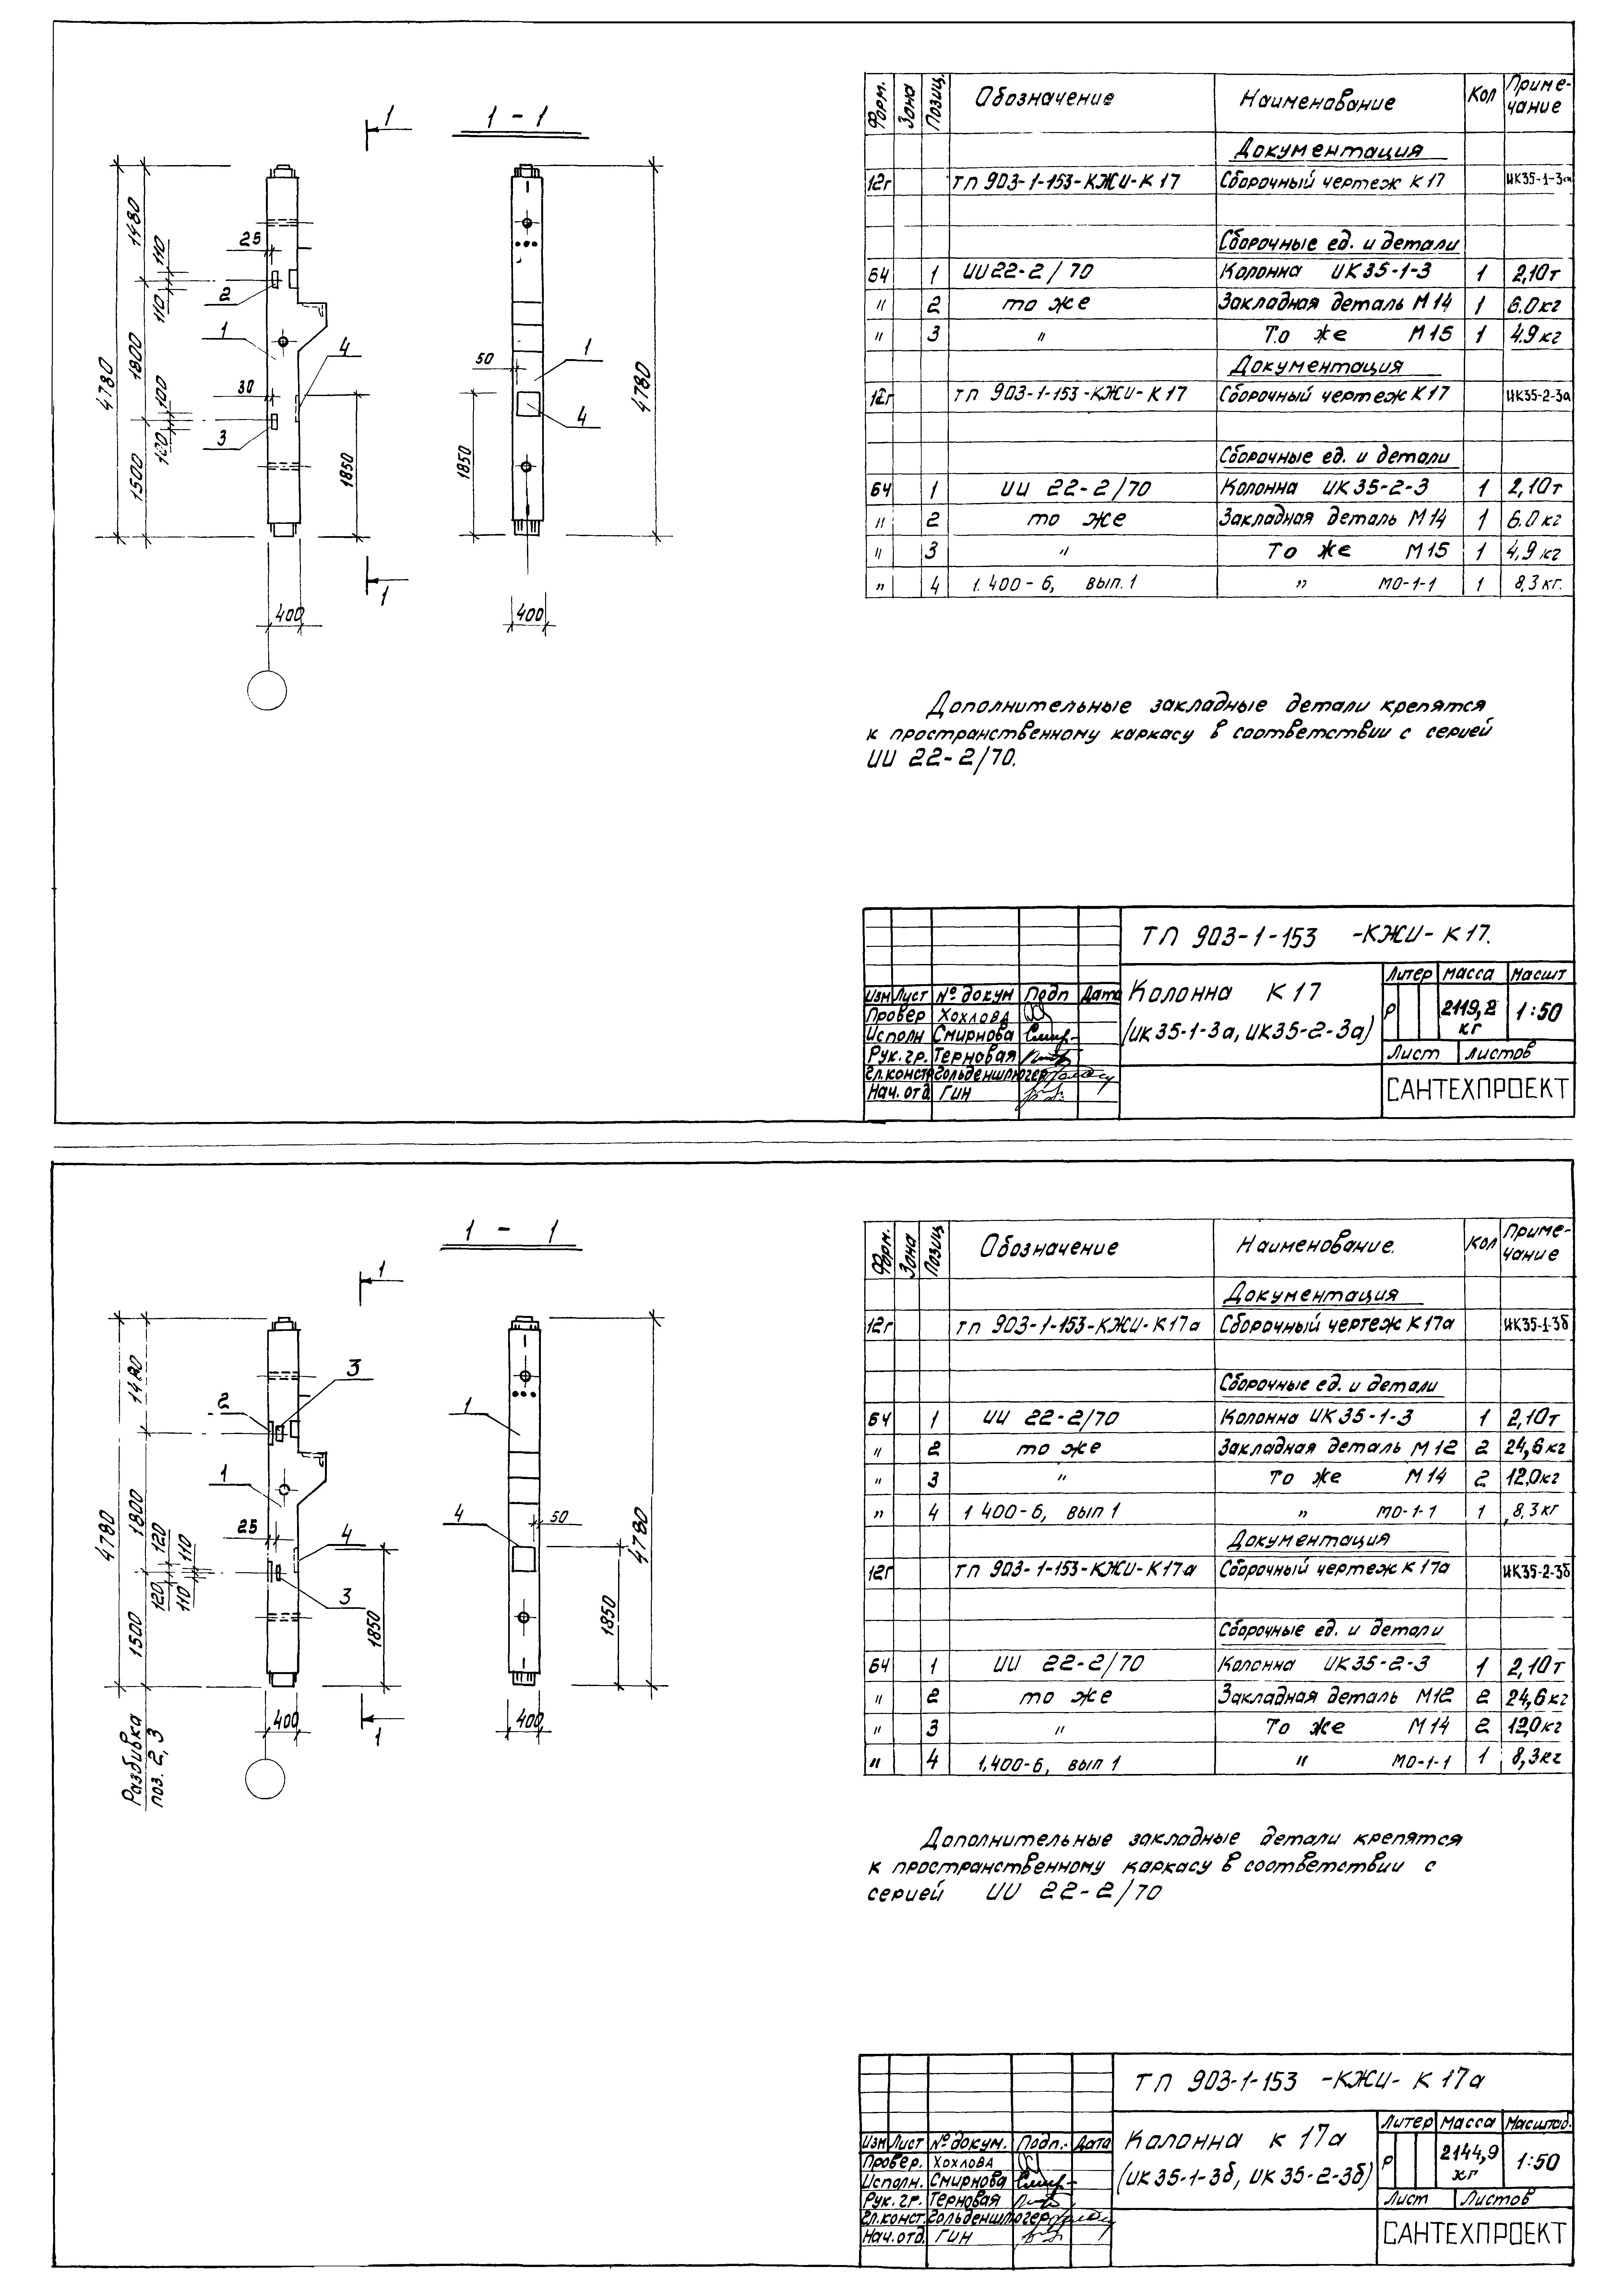 1
1 - 1
Форм.
Зона
Позиц.
Обозначение
Наименование
Кол
Приме-
чание
Документация
12г ТП 903-1-153-КЖИ-К17 Сборочный чертеж К17
Сборочные ед. и детали
БЧ 1 ИИ22-2/70 Колонна ИК35-1-3 1 2,10т
" 2 то же Закладная деталь М14 1 6.0кг
" 3 " То же М15 1 4.9кг
Документация
12г ТП 903-1-153-КЖИ-К17 Сборочный чертеж К17 ИК35-2-3а
Сборочные ед. и детали
БЧ 1 ИИ 22-2/70 Колонна ИК35-2-3 1 2,10т
" 2 то же Закладная деталь М14 1 6.0кг
" 3 " То же М15 1 4,9кг
" 4 1.400-6, вып.1 " МО-1-1 1 8,3кг.
4780
1480
1800
1500
110
110
100
100
25
2
1
30
3
4
1850
400
1
50
1
4
1850
4780
400
Дополнительные закладные детали крепятся
к пространственному каркасу в соответствии с серией
ИИ 22-2/70.
ТП 903-1-153 -КЖИ- К17.
Колонна К17
(ИК35-1-3а, ИК35-2-3а)
Литер Масса Масшт
Р 2119,2 кг 1:50
Лист Листов
САНТЕХПРОЕКТ
Изм Лист № докум Подп Дата
Провер Хохлова
Исполн Смирнова
Рук.гр. Терновая
Гл.констр Гольденшлюгер
Нач.отд. Гин
1 - 1
1
Форм.
Зона
Позиц
Обозначение
Наименование.
Кол
Приме-
чание
Документация
12г ТП 903-1-153-КЖИ-К17а Сборочный чертеж К17а ИК35-1-3б
Сборочные ед. и детали
БЧ 1 ИИ 22-2/70 Колонна ИК35-1-3 1 2,10т
" 2 то же Закладная деталь М12 2 24,6кг
" 3 " То же М14 2 12.0кг
" 4 1400-6, вып 1 " МО-1-1 1 8,3кг
Документация
12г ТП 903-1-153-КЖИ-К17а Сборочный чертеж К17а ИК35-2-3б
Сборочные ед. и детали
БЧ 1 ИИ 22-2/70 Колонна ИК35-2-3 1 2,10т
" 2 то же Закладная деталь М12 2 24,6кг
" 3 " То же М14 2 12.0кг
" 4 1.400-6, вып 1 " МО-1-1 1 8,3кг
4780
1480
1800
1500
120
120
110
110
2
3
1
25
4
3
1850
400
1
Разбивка
поз. 2, 3
1
4
50
1850
4780
400
Дополнительные закладные детали крепятся
к пространственному каркасу в соответствии с
серией ИИ 22-2/70
ТП 903-1-153 -КЖИ- К17а
Колонна К 17а
(ИК35-1-3б, ИК 35-2-3б)
Литер Масса Масштаб.
Р 2144,9 кг 1:50
Лист Листов
САНТЕХПРОЕКТ
Изм Лист № докум. Подп. Дата
Провер. Хохлова
Исполн. Смирнова
Рук. гр. Терновая
Гл.конст. Гольденшлюгер
Нач.отд. Гин